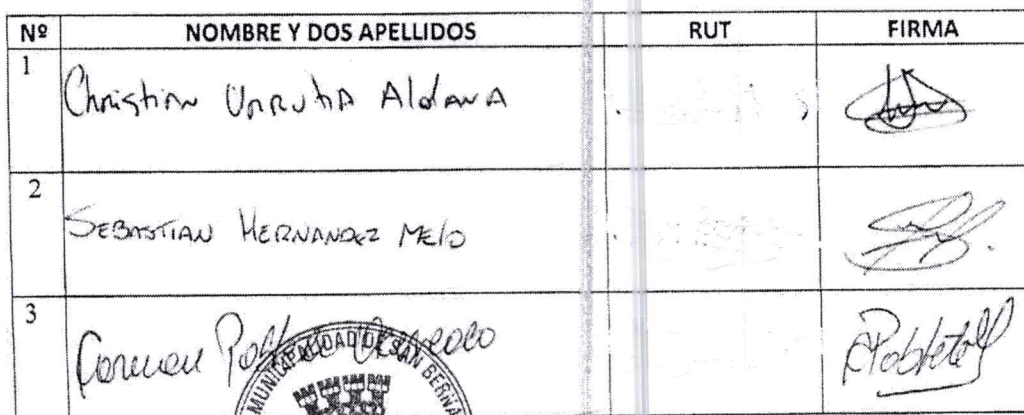 Nº NOMBRE Y DOS APELLIDOS RUT FIRMA
1 Christian Urrutia Aldana
2 SEBASTIAN HERNANDEZ MElO
3 Carmen Poblete
CPobleteO
MUNICIPALIDAD DE SAN BERNA